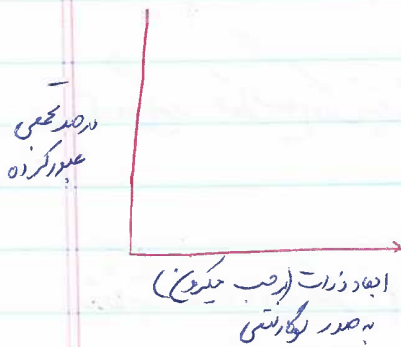 درصد تجمعی
عبور کرده
ابعاد ذرات (برحسب میکرون)
به صورت لگاریتمی